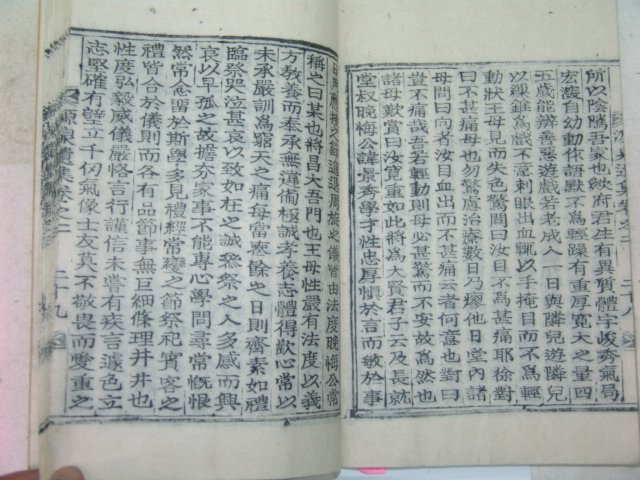 所以陰隲吾家也歟府君生有異質體宇峻秀氣局
宏濶自幼動作語默不爲輕躁有重厚寬大之量四
五歲能辨善惡遊戱若老成人一日與隣兒遊隣兒
以線錐爲戱不意刺眼出血輒以手掩目而不爲輕
動狀王母見而失色驚問曰汝目不爲甚痛耶徐對
曰不爲甚痛母也勿驚慮治療數日乃瘳他日堂內諸
母問曰向者汝目血出而不甚痛云者何意也對曰
貴不痛哉吾若輕動則母必甚驚而不安故爲然也
諸母歎賞曰汝寬重如此將爲大賢君子云及長就
堂叔晩悔公諱景奭學才性忠厚愼於言而敏於事
進退周旋之儀皆由法度晩悔公常
稱之曰某也將昌大吾門也王母性嚴有法度以義
方敎養而奉承無違葡極誠孝養志體得歡心常以
未承嚴訓爲窮天之痛每當喪餘之日則齊素如禮
臨祭哭泣甚哀以致如在之誠叅祭之人多感而興
哀以早孤之故擔夯家事不能專心學問尋常慨恨
然常念留於斯學多見禮經常變之節祭祀賓客之
禮皆合於儀則而各有品節事無巨細條理井井也
性度弘毅威儀嚴恪言行謹信未嘗有疾言遽色立
志堅確有壁立千仞氣像士友莫不敬畏而愛重之
卷之二 二十九